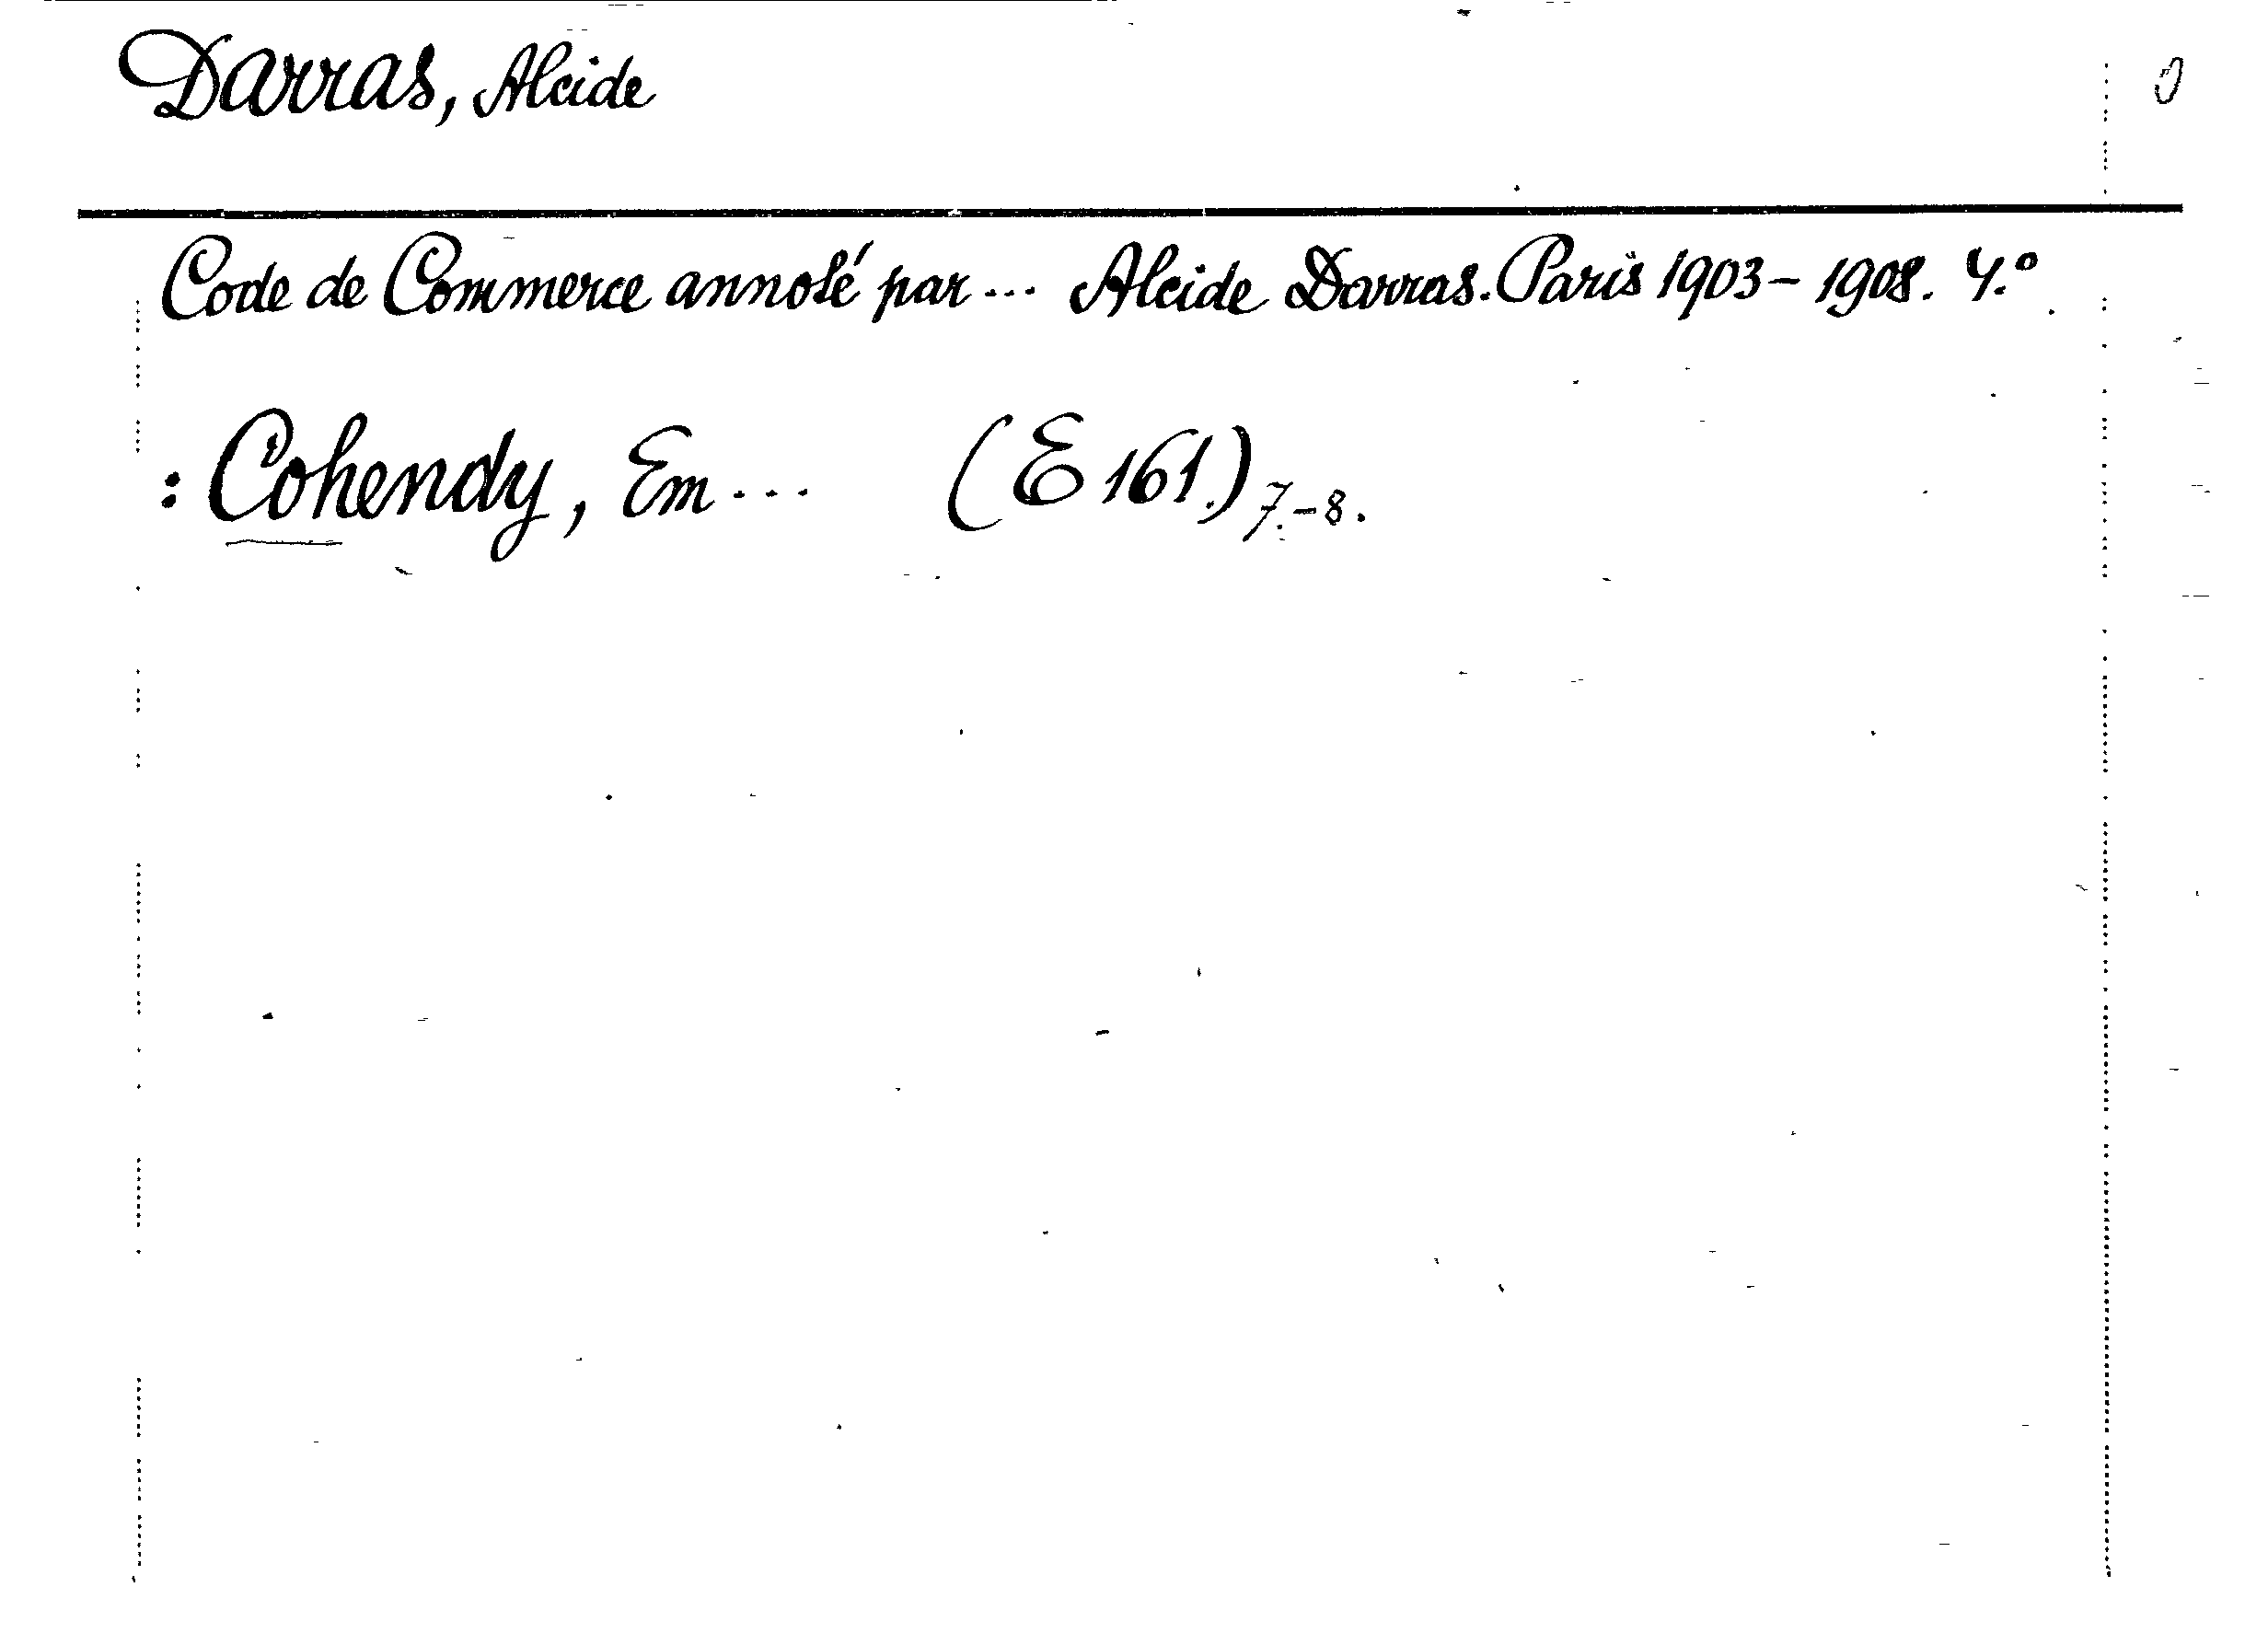 Darras, Alcide
Code de Commerce annoté par... Alcide Darras. Paris 1903-1908. 4.°
: Cohendy, Em... (E 161.) 7.-8.